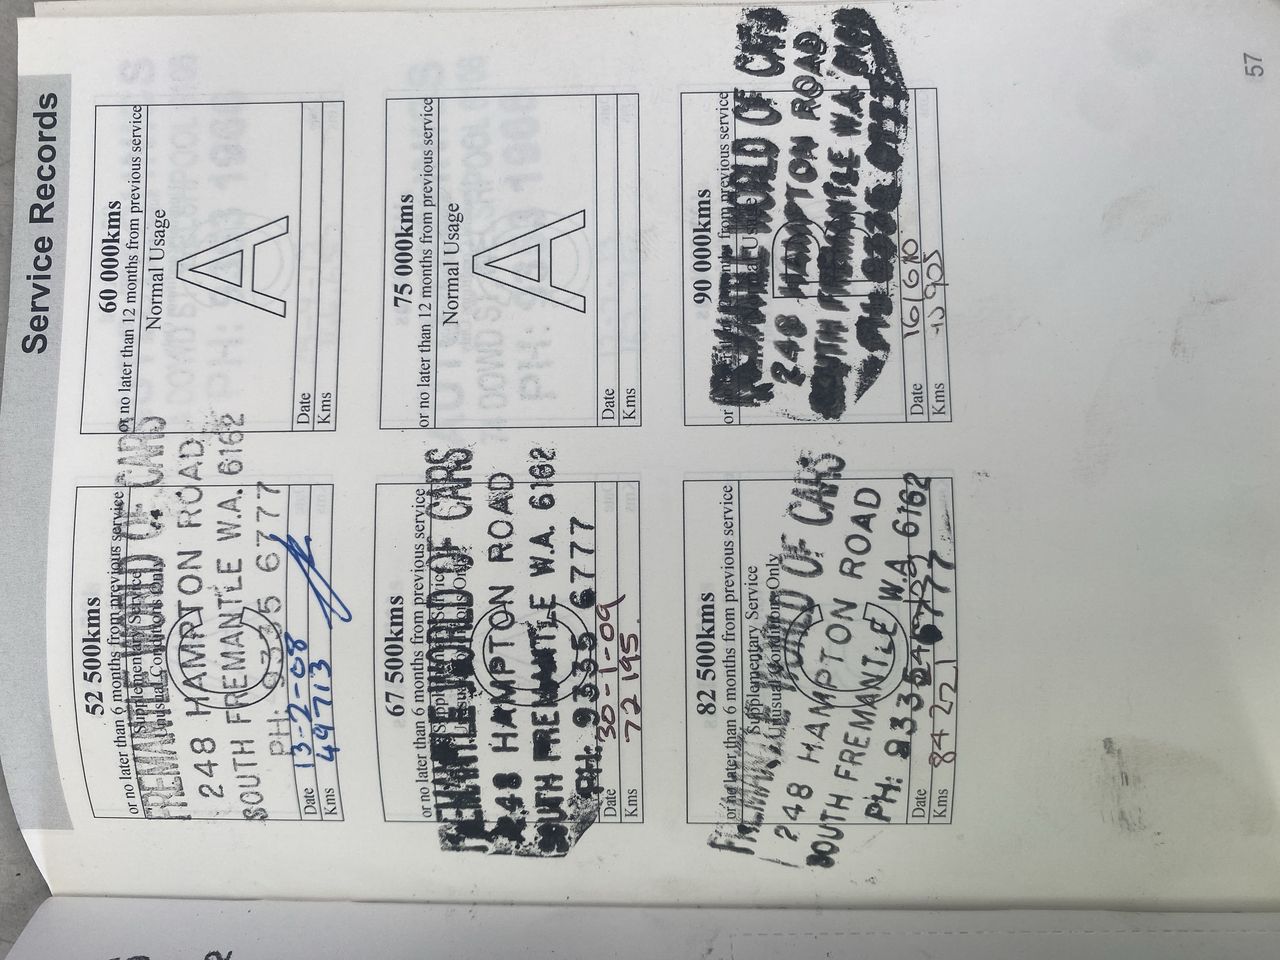 Service Records
52 500kms
or no later than 6 months from previous service
Supplementary Service
Unusual Conditions Only
FREMANTLE WORLD OF CARS
248 HAMPTON ROAD
SOUTH FREMANTLE W.A. 6162
PH: 9335 6777
Date 13-2-08
Kms 49713
60 000kms
or no later than 12 months from previous service
Normal Usage
A
Date
Kms
67 500kms
or no later than 6 months from previous service
Supplementary Service
Unusual Conditions Only
FREMANTLE WORLD OF CARS
248 HAMPTON ROAD
SOUTH FREMANTLE W.A. 6162
PH: 9335 6777
Date 30-1-09
Kms 72195
75 000kms
or no later than 12 months from previous service
Normal Usage
A
Date
Kms
82 500kms
or no later than 6 months from previous service
Supplementary Service
Unusual Conditions Only
FREMANTLE WORLD OF CARS
248 HAMPTON ROAD
SOUTH FREMANTLE W.A 6162
PH: 9335 6777
Date
Kms 84221
90 000kms
or no later than 12 months from previous service
Normal Usage
FREMANTLE WORLD OF CARS
248 HAMPTON ROAD
SOUTH FREMANTLE W.A.
Date 16/6/10
Kms
57